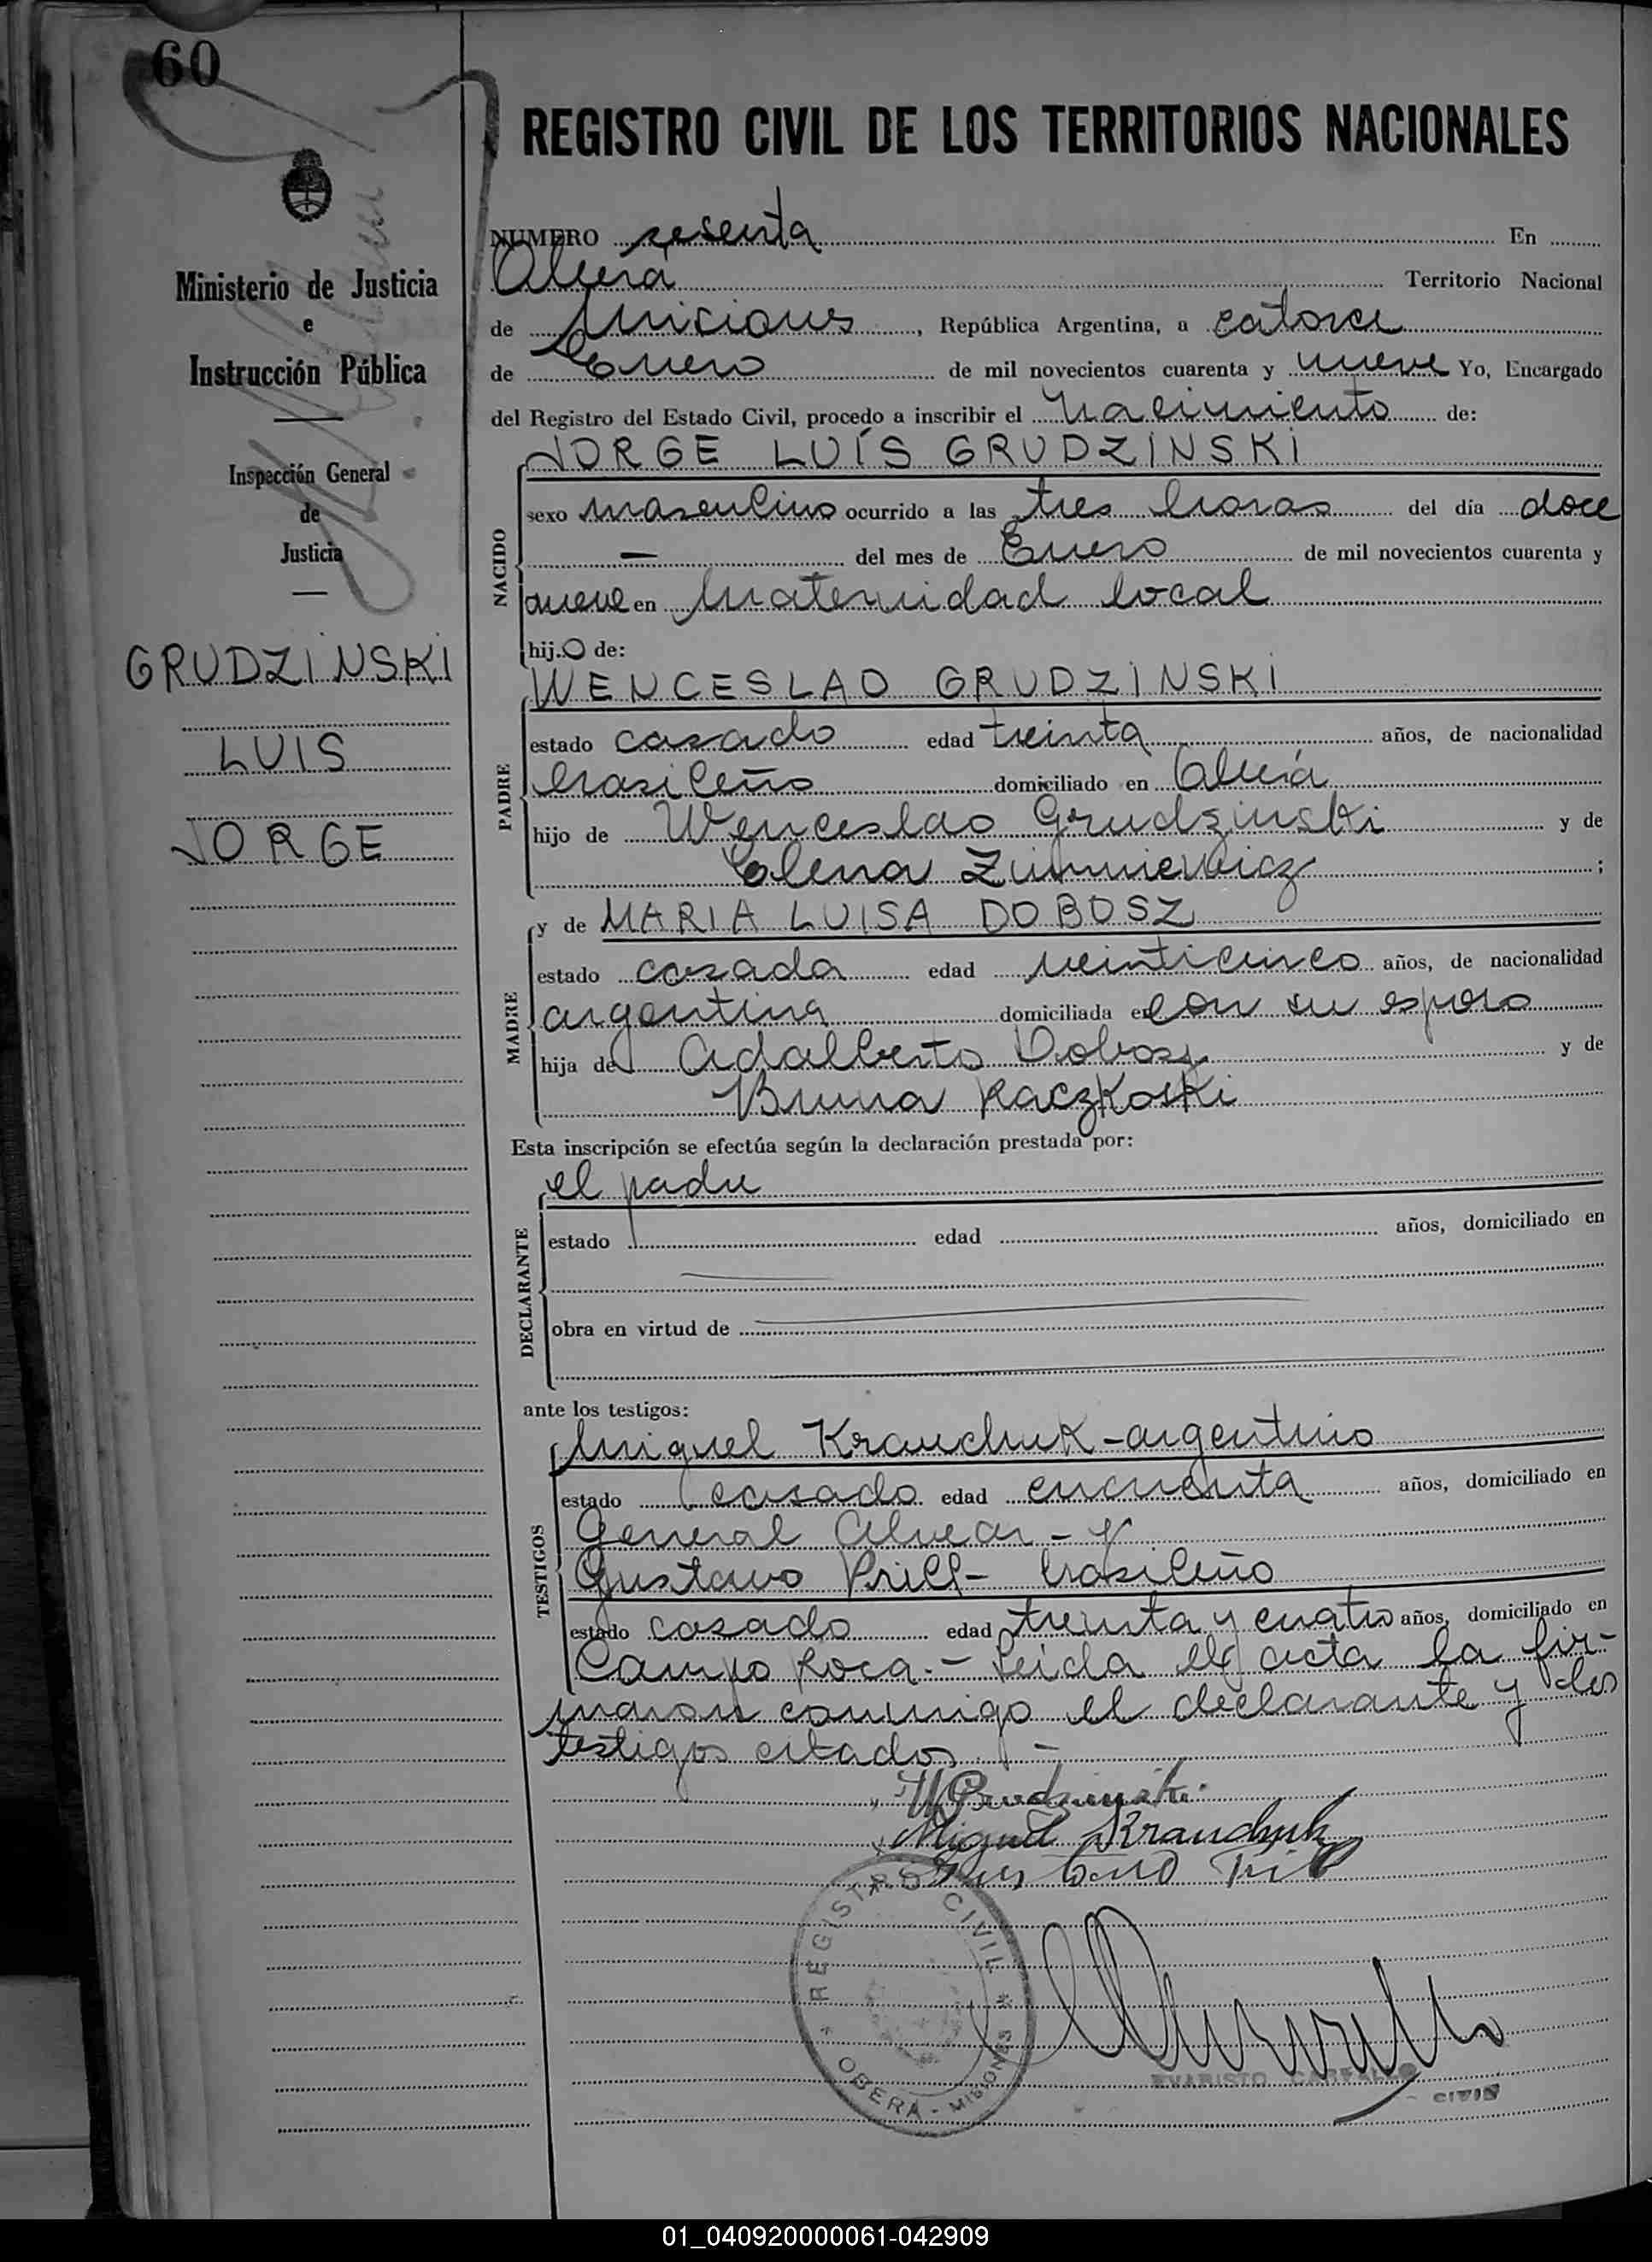 60
REGISTRO CIVIL DE LOS TERRITORIOS NACIONALES
Ministerio de Justicia
e
Instrucción Pública
Inspección General
de
Justicia
GRUDZINSKI
LUIS
JORGE
NUMERO sesenta En
Oberá Territorio Nacional
de Misiones, República Argentina, a catorce
de Enero de mil novecientos cuarenta y nueve Yo, Encargado
del Registro del Estado Civil, procedo a inscribir el Nacimiento de:
JORGE LUÍS GRUDZINSKI
NACIDO
sexo masculino ocurrido a las tres horas del día doce
— del mes de Enero de mil novecientos cuarenta y
nueve en Maternidad local
hijo de:
WENCESLAO GRUDZINSKI
PADRE
estado casado edad treinta años, de nacionalidad
brasileño domiciliado en Oberá
hijo de Wenceslao Grudzinski y de
Elena Zimniewicz ;
y de MARIA LUISA DOBOSZ
MADRE
estado casada edad veinticinco años, de nacionalidad
argentina domiciliada en con su esposo
hija de Adalberto Dobosz y de
Bruna Raczkoski
Esta inscripción se efectúa según la declaración prestada por:
el padre
DECLARANTE
estado edad años, domiciliado en
obra en virtud de
ante los testigos:
Miguel Krauchuk - argentino
TESTIGOS
estado casado edad cincuenta años, domiciliado en
General Alvear - y
Gustavo Prill - brasileño
estado casado edad treinta y cuatro años, domiciliado en
Campo Roca.- Leida el acta la fir-
maron conmigo el declarante y los
testigos citados. —
W Grudzinski
Miguel Krauchuk
Gustavo Pril
REGISTRO CIVIL
OBERÁ - MISIONES
EVARISTO CARBALLO
CIVIL
01_040920000061-042909